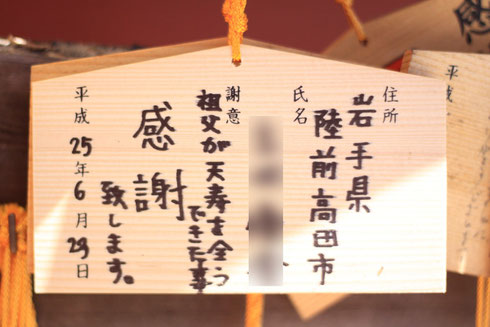 住所
岩手県
陸前高田市
氏名
謝意
祖父が天寿を全う
できた事
感謝
致します。
平成25年6月29日
感
平成